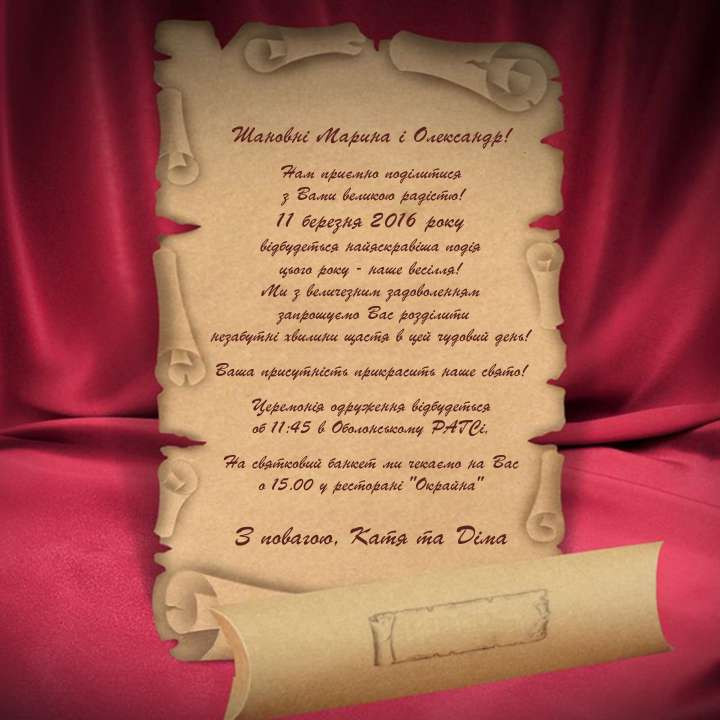 Шановні Марина і Олександр!
Нам приємно поділитися
з Вами великою радістю!
11 березня 2016 року
відбудеться найяскравіша подія
цього року - наше весілля!
Ми з величезним задоволенням
запрошуємо Вас розділити
незабутні хвилини щастя в цей чудовий день!
Ваша присутність прикрасить наше свято!
Церемонія одруження відбудеться
об 11:45 в Оболонському РАГСі.
На святковий банкет ми чекаємо на Вас
о 15.00 у ресторані "Окрайна"
З повагою, Катя та Діма